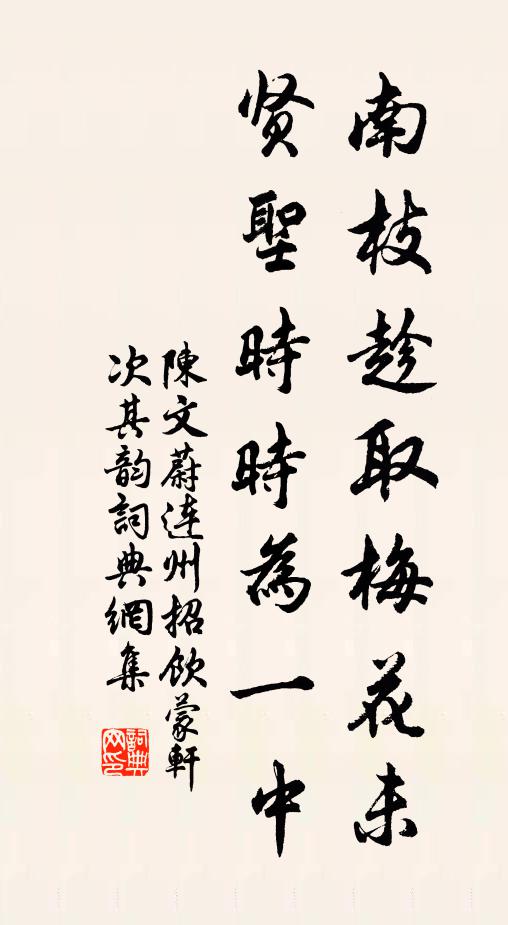 南枝趁取梅花未
贤聖時時為一中
陳文蔚連州招飲蒙軒
次其韵詞典網集
詞典网印